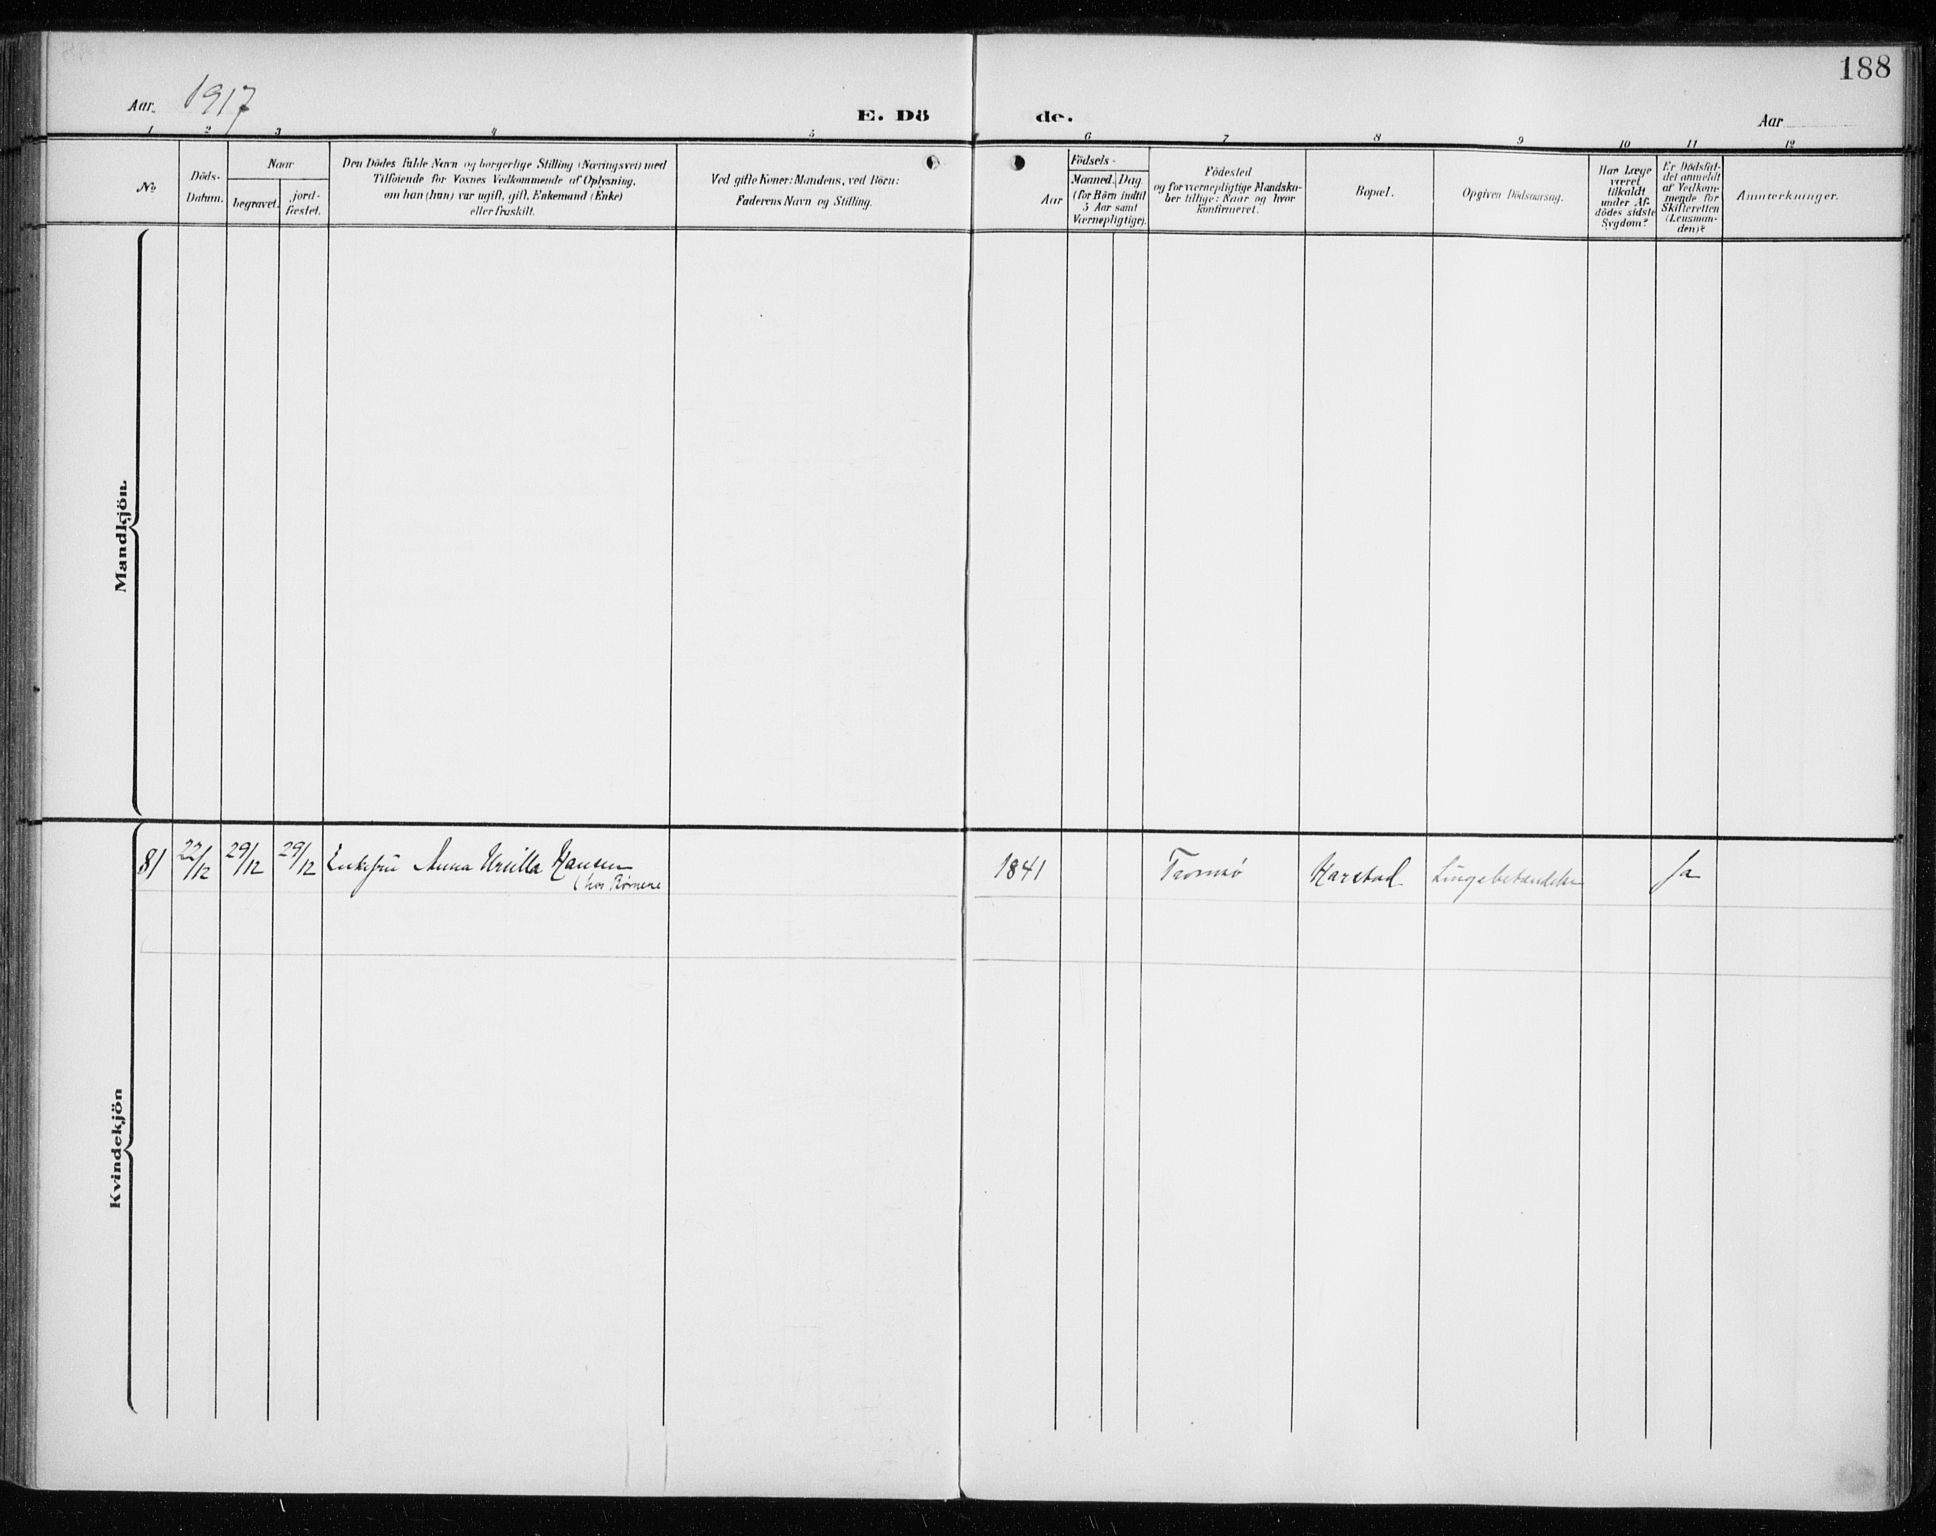 188
Aar. 1917
E. Dö
de.
Aar
1 2 3 4 5 6 7 8 9 10 11 12
No
Döds-
Datum.
Naar
begravet.
jord-
fæstet.
Den Dödes fulde Navn og borgerlige Stilling (Næringsvei) med
Tilföiende for Voxnes Vedkommende af Oplysning,
om han (hun) var ugift, gift, Enkemand (Enke)
eller fraskilt.
Ved gifte Koner: Mandens, ved Börn:
Faderens Navn og Stilling.
Aar
Födsels-
Maaned. Dag.
(for Börn indtil
5 Aar samt
Værnepligtige).
Födested
og for værnepligtige Mandska-
ber tillige: Naar og hvor
konfirmeret.
Bopæl.
Opgiven Dödsaarsag.
Har Læge
været
tilkaldt
under Af-
dödes sidste
Sygdom?
Er Dödsfal-
det anmeldt
af Vedkom-
mende for
Skifteretten
(Lensman-
den)?
Anmerkninger.
Mandkjön.
81 22/12 29/12 29/12 Enkefru Anna Ursilla Hansen 1841 Tromsö Harstad Lungebetændelse Ja
(hos
Kvindekjön